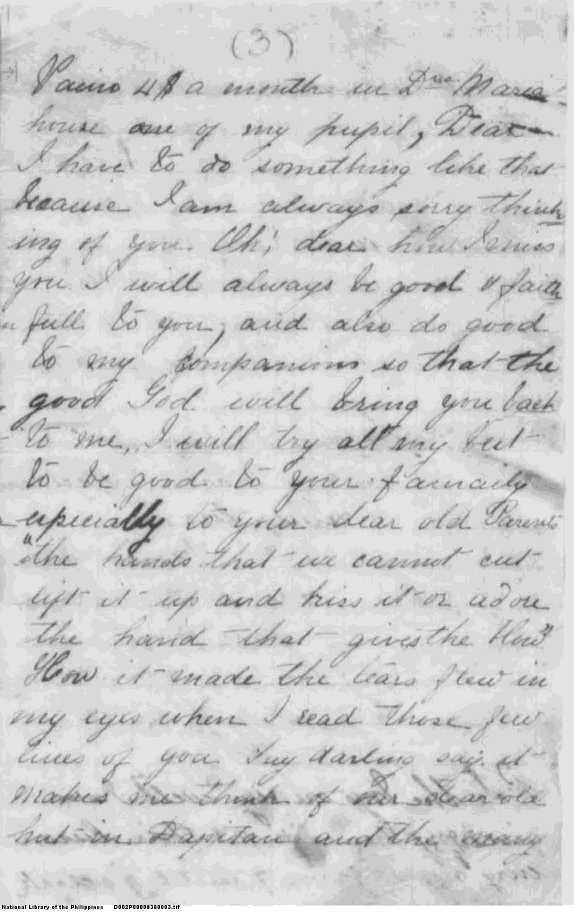 (3)
4$ a month in Dña Maria
house one of my pupil, Dear
I have to do something like that
because I am always sorry think
ing of you Oh! dear how I miss
you I will always be good & faith
full to you, and also do good
to my companions so that the
good God will bring you back
to me, I will try all my best
to be good to your famaily
especially to your dear old Parents
"the hands that we cannot cut
lift it up and kiss it or adore
the hand that gives the blow"
How it made the tears flew in
my eyes when I read those few
lines of you my darling say it
makes me think of our dear old
hut in Dapitan and the many
National Library of the Philippines